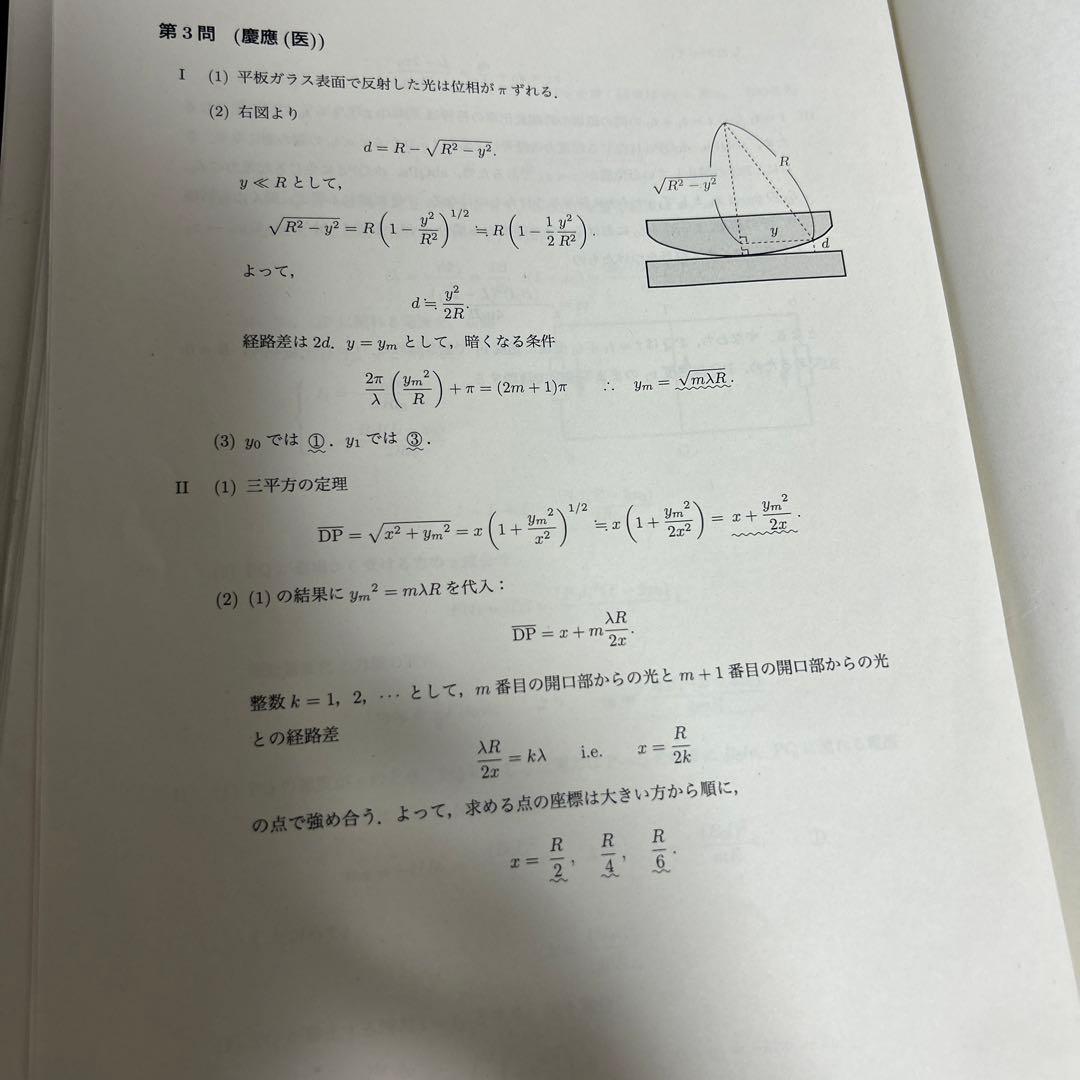 第3問 (慶應(医))
I (1) 平板ガラス表面で反射した光は位相が π ずれる.
(2) 右図より
d = R − √(R² − y²).
y ≪ R として,
√(R² − y²) = R(1 − y²/R²)^{1/2} ≒ R(1 − 1/2 y²/R²).
よって,
d ≒ y²/2R.
経路差は 2d. y = y_m として, 暗くなる条件
2π/λ (y_m²/R) + π = (2m + 1)π ∴ y_m = √(mλR).
(3) y₀ では ①. y₁ では ③.
√(R² − y²)
R
y
d
II (1) 三平方の定理
D̅P̅ = √(x² + y_m²) = x(1 + y_m²/x²)^{1/2} ≒ x(1 + y_m²/2x²) = x + y_m²/2x.
(2) (1) の結果に y_m² = mλR を代入:
D̅P̅ = x + m λR/2x.
整数 k = 1, 2, ⋯ として, m 番目の開口部からの光と m + 1 番目の開口部からの光
との経路差
λR/2x = kλ i.e. x = R/2k
の点で強め合う. よって, 求める点の座標は大きい方から順に,
x = R/2, R/4, R/6.